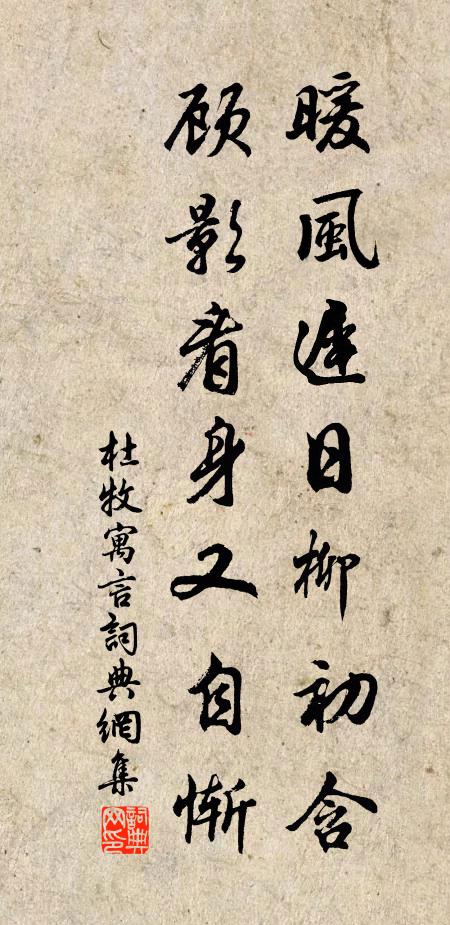 暖風遲日柳初含
顧影看身又自慚
杜牧寓言詞典網集
詞典網印